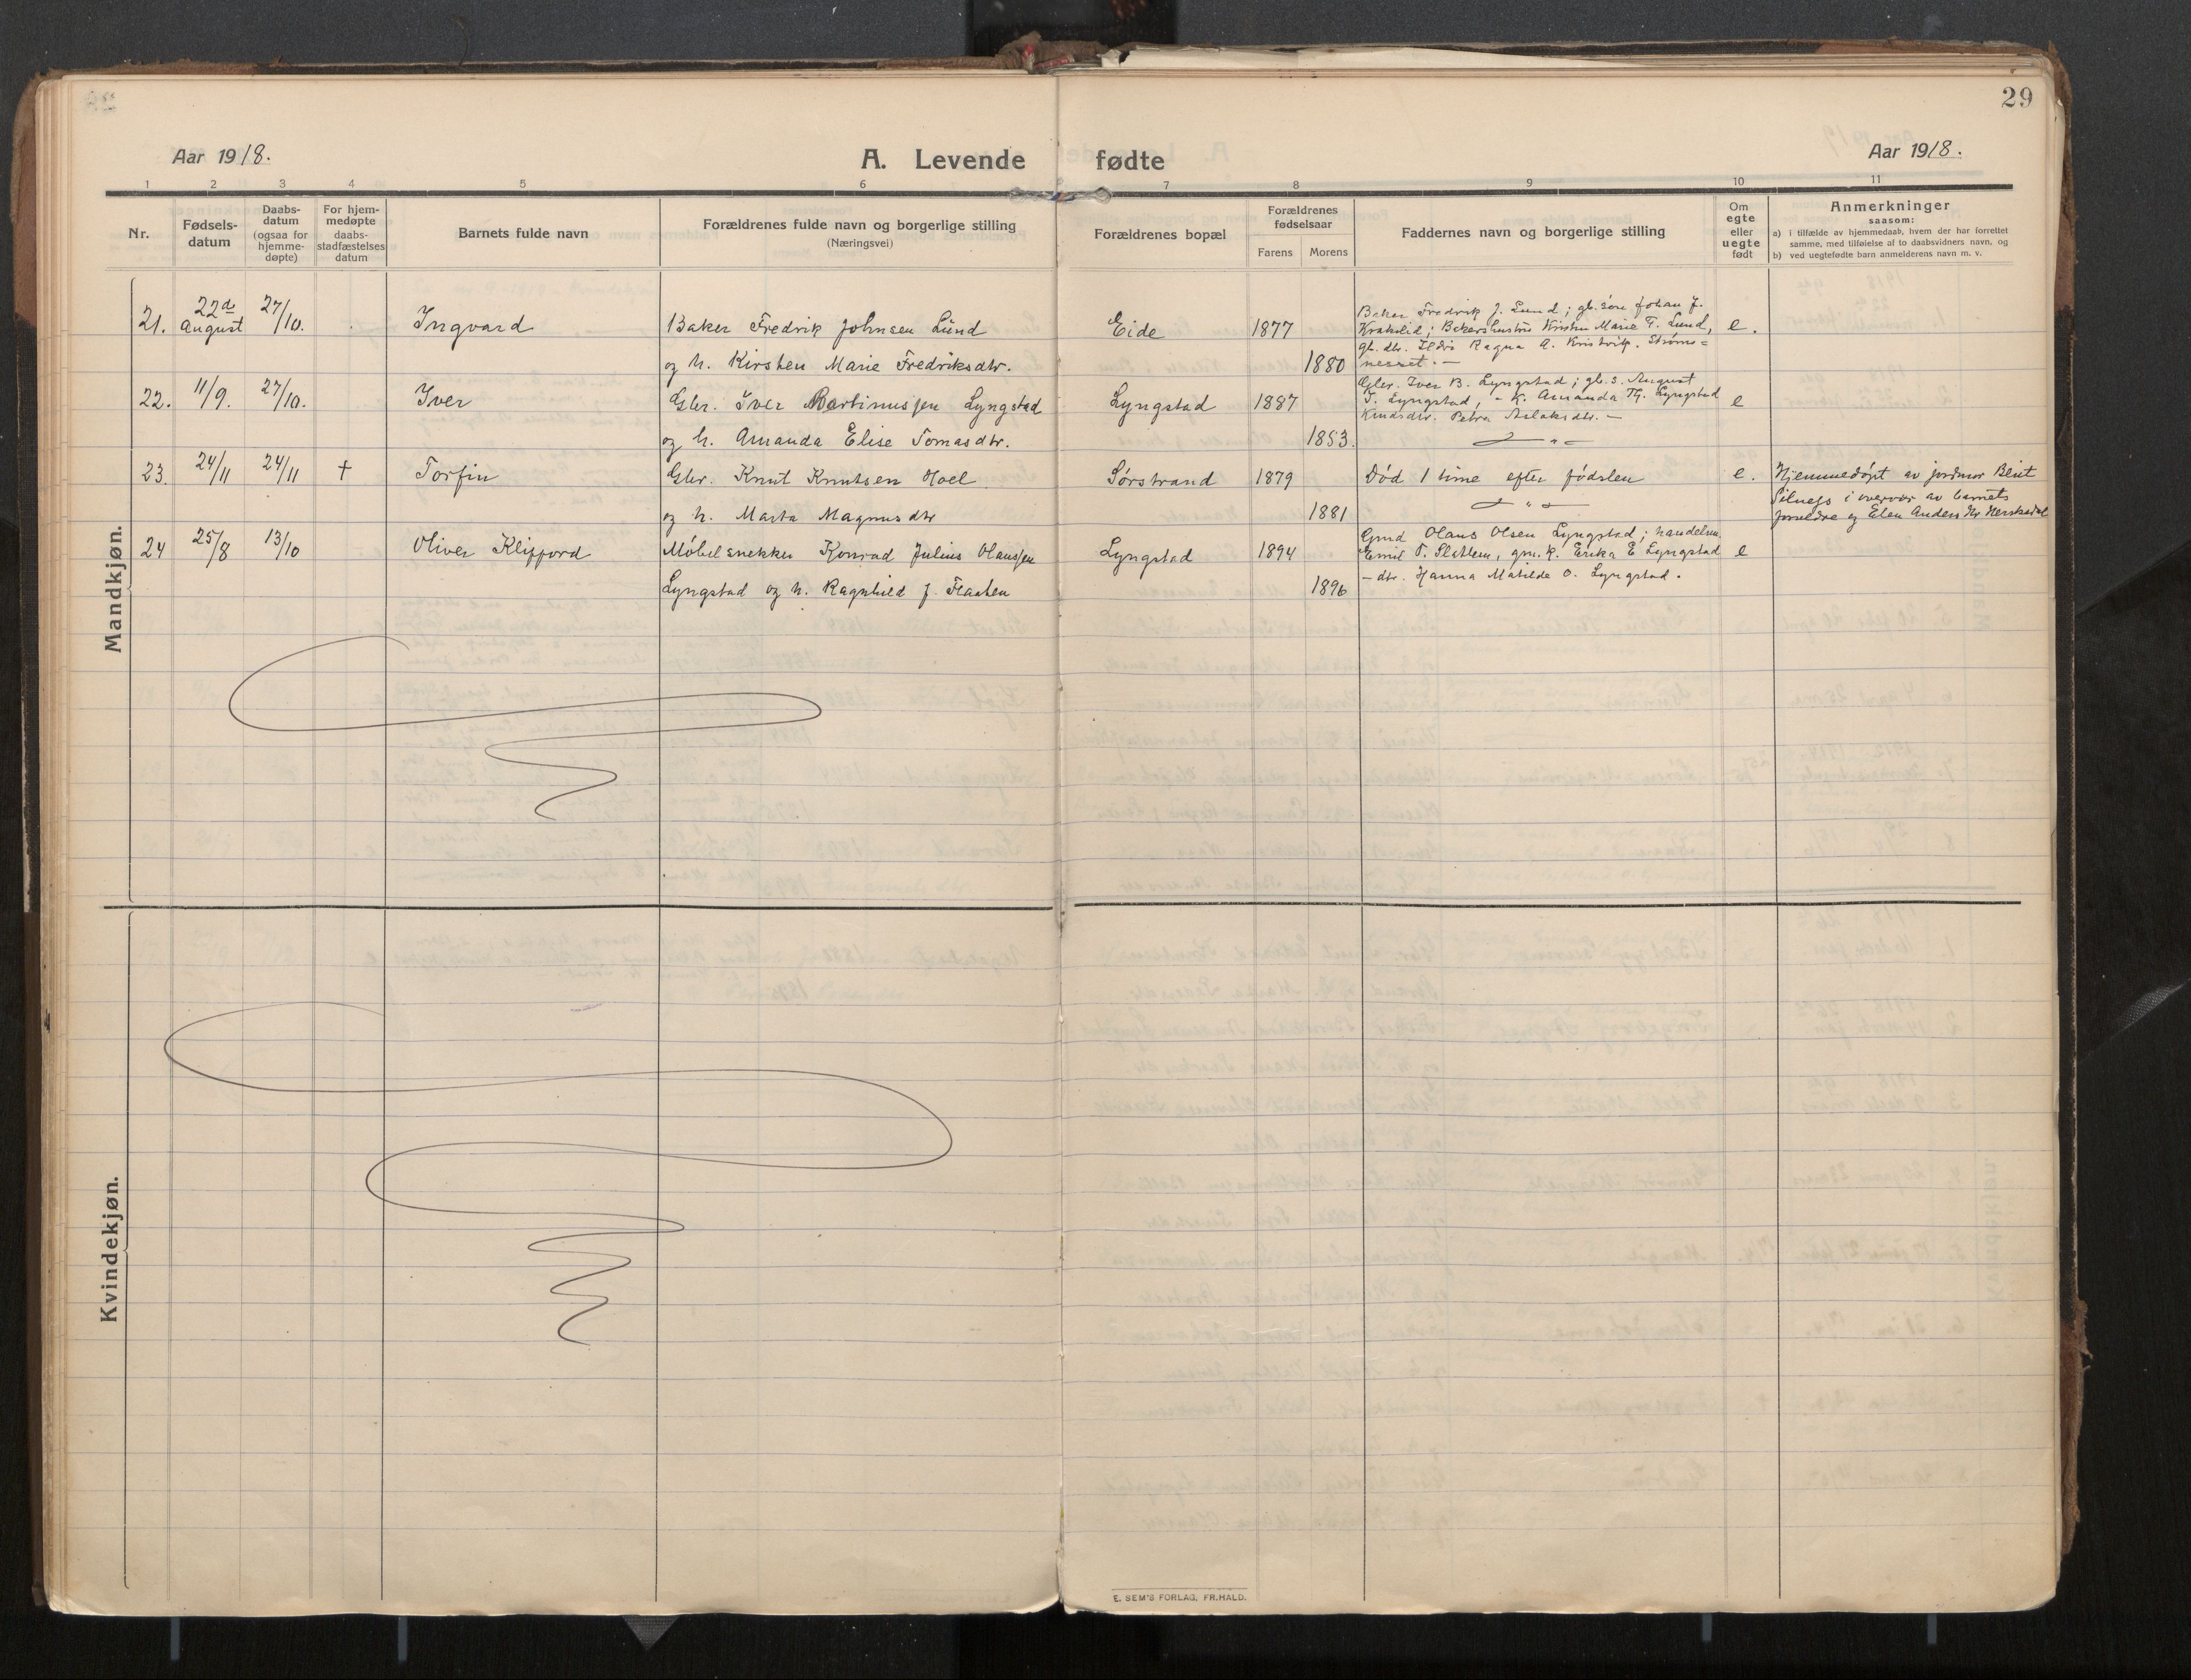 29
Aar 1918.
A. Levende fødte
Aar 1918.
1 2 3 4 5 6 7 8 9 10 11
Nr.
Fødsels-
datum
Daabs-
datum
(ogsaa for
hjemme-
døpte)
For hjem-
medøpte
daabs-
stadfæstelses
datum
Barnets fulde navn
Forældrenes fulde navn og borgerlige stilling
(Næringsvei)
Forældrenes bopæl
Forældrenes
fødselsaar
Farens Morens
Faddernes navn og borgerlige stilling
Om
egte
eller
uegte
født
Anmerkninger
saasom:
a) i tilfælde av hjemmedaab, hvem der har forrettet
samme, med tilføielse af to daabsvidners navn, og
b) ved uegtefødte barn anmelderens navn m. v.
Mandkjøn.
21. 22de August 27/10. Ingvard Baker Fredrik Johnsen Lund Eide 1877 e.
og h. Kirsten Marie Fredriksdtr. 1880
Baker Fredrik J. Lund; gb. søn Johan J.
Krakelid; Bakershustru Kristin Marie F. Lund,
gb. dtr. Ildri Ragna A. Kristvik. Strøms=
nesset. —
22. 11/9. 27/10. Iver Gbr. Iver Martinussen Lyngstad Lyngstad 1887 e
og h. Amanda Elise Tomasdtr. 1853.
Gbr. Iver B. Lyngstad; gb. s. August
T. Lyngstad, - K. Amanda Th. Lyngstad
Knudsdtr. Petra Aslaksdtr. —
23. 24/11 24/11 † Torfin Gbr. Knut Knutsen Hoel Sørstrand 1879 Død 1 time efter fødslen e.
og h. Marta Magnusdtr 1881
Hjemmedøpt av jordmor Berit
Silnes i overvær av barnets
forældre og Elen Andersdtr Herskedal
24 25/8 13/10 Oliver Klifford Møbelsnekker Konrad Julius Olaussen Lyngstad 1894 e
Lyngstad og h. Ragnhild J. Flaaten 1896
Gmd Olaus Olsen Lyngstad; handelsm.
Emil T. Slatlem, gm. k. Erika E Lyngstad
— dtr. Hanna Matilde O. Lyngstad.
Kvindekjøn.
E. SEM'S FORLAG, FR.HALD.